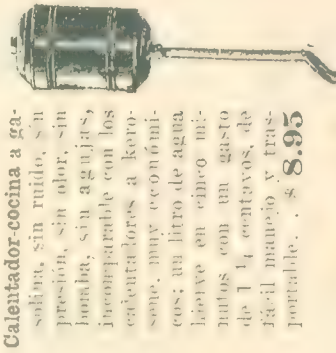 Calentador-cocina a ga-
solina, sin ruido, sin
presión, sin olor, sin
bomba, sin agujas,
incomparable con los
calentadores a kero-
sene, muy económi-
cos; un litro de agua
hierve en cinco mi-
nutos con un gasto
de 1 ¼ centavos, de
fácil manejo y tras-
portable. . $ 8.95